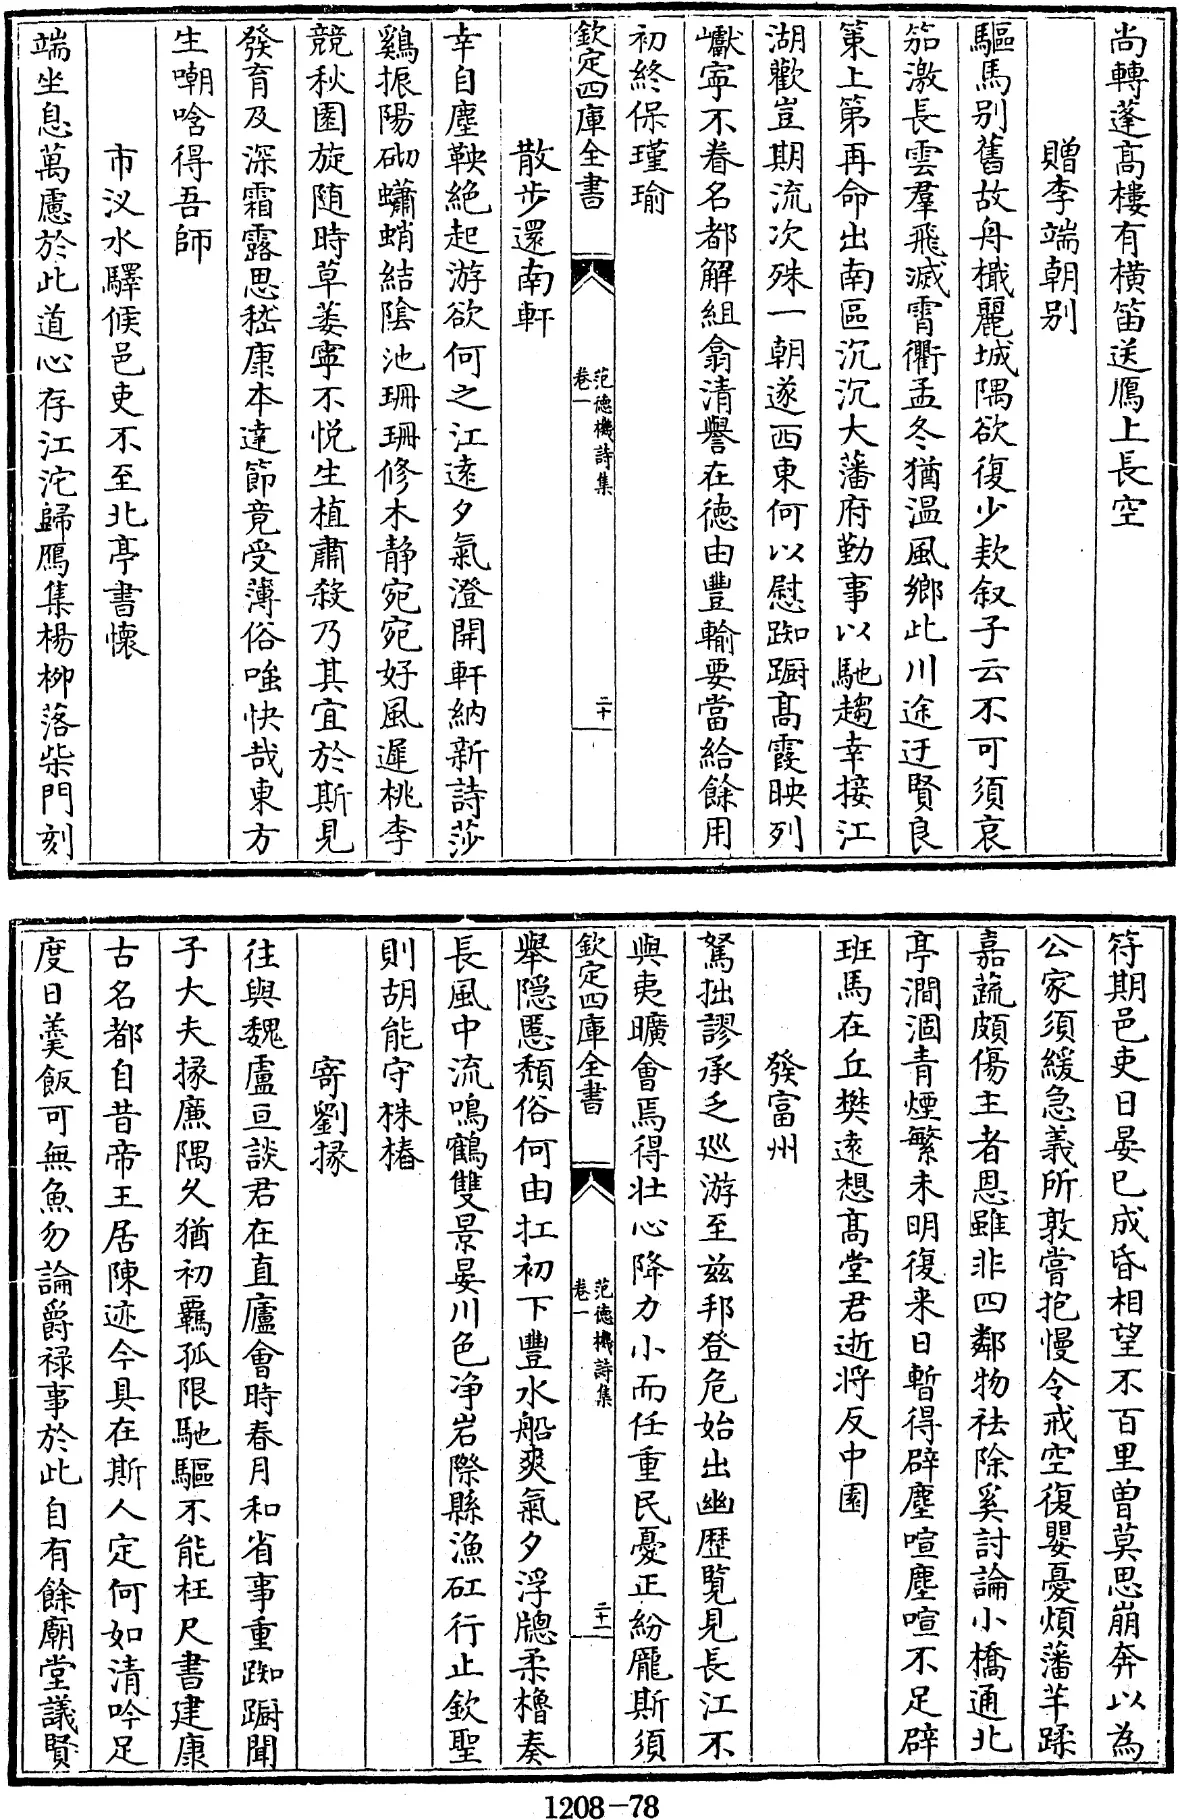 尚轉蓬髙樓有横笛送鴈上長空
贈李端朝别
驅馬别舊故舟檝麗城隅欲復少欵叙子云不可須哀
笳激長雲羣飛滅霄衢孟冬猶温風鄉此川途迂賢良
䇿上第再命出南區沉沉大藩府勤事以馳趨幸接江
湖歡豈期流次殊一朝遂西東何以慰踟蹰髙霞映列
巘寜不眷名都解組翕清譽在徳由豐輸要當給餘用
初終保瑾瑜
欽定四庫全書
范德機詩集
卷一
二十
散步還南軒
幸自塵鞅絶起游欲何之江逺夕氣澄開軒納新詩莎
鷄振陽砌蠨蛸結陰池珊珊修木静宛宛好風遲桃李
競秋園旋随時草萎寜不悦生植肅殺乃其宜於斯見
發育及深霜露思嵇康本達節竟受薄俗嗤快哉東方
生嘲唅得吾師
市汊水驛候邑吏不至北亭書懷
端坐息萬慮於此道心存江沱歸鴈集楊柳落柴門刻
符期邑吏日晏已成昏相望不百里曽莫思崩奔以為
公家須緩急義所敦嘗抱慢令戒空復嬰憂煩藩羊蹂
嘉蔬頗傷主者恩雖非四鄰物祛除奚討論小橋通北
亭澗涸青煙繁未明復来日暫得辟塵喧塵喧不足辟
班馬在丘樊逺想髙堂君逝将反中園
發富州
駑拙謬承乏巡游至兹邦登危始出幽歴覧見長江不
與夷曠會焉得壮心降力小而任重民憂正紛厖斯須
欽定四庫全書
范德機詩集
卷一
二十一
舉隠慝頽俗何由扛初下豐水船爽氣夕浮牕柔櫓奏
長風中流鳴鶴雙景晏川色净岩際縣漁矼行止欽聖
則胡能守株椿
寄劉掾
往與魏盧亘談君在直廬㑹時春月和省事重踟蹰聞
子大夫掾亷隅乆猶初羈孤限馳驅不能枉尺書建康
古名都自昔帝王居陳迹今具在斯人定何如清吟足
度日羮飯可無魚勿論爵禄事於此自有餘廟堂議賢
1208-78